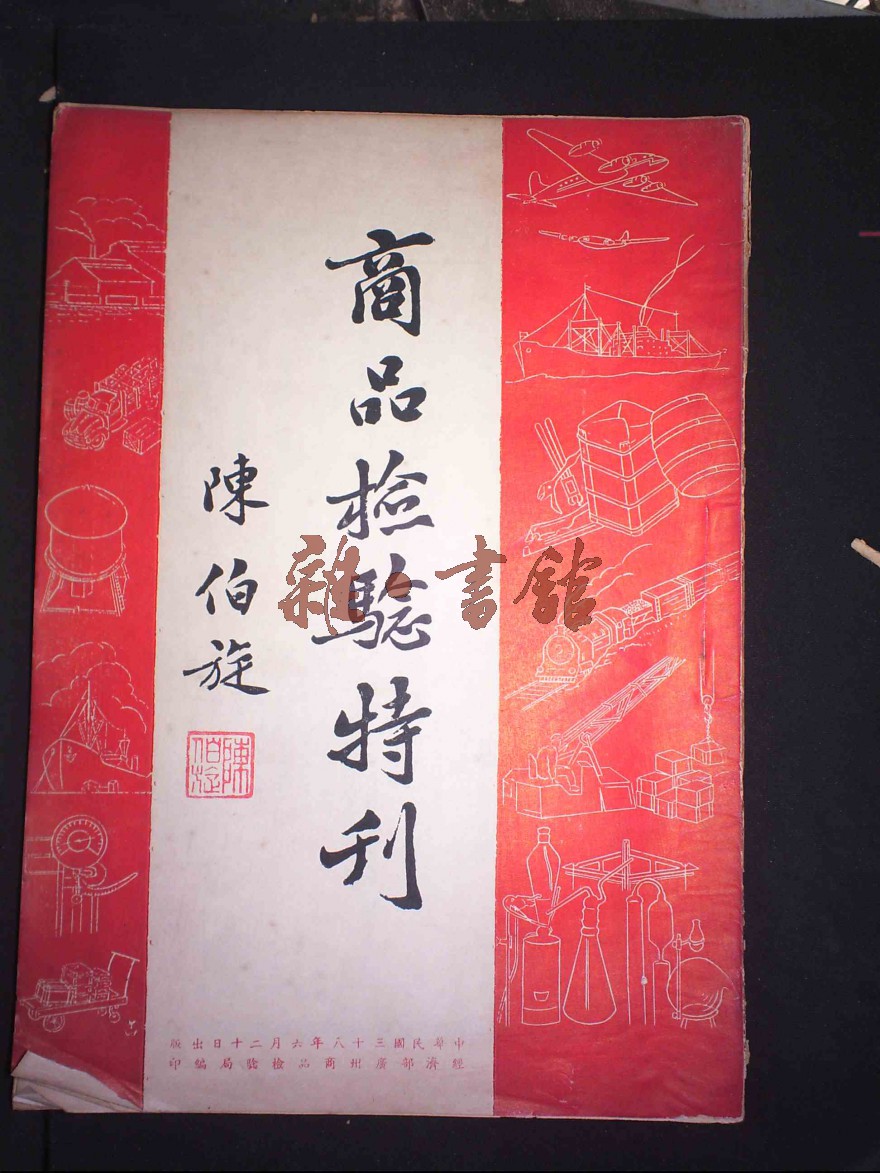 商品檢驗特刊
陳伯旋
陳伯旋
中華民國三十八年六月二十日出版
經濟部廣州商品檢驗局編印
雜·書館